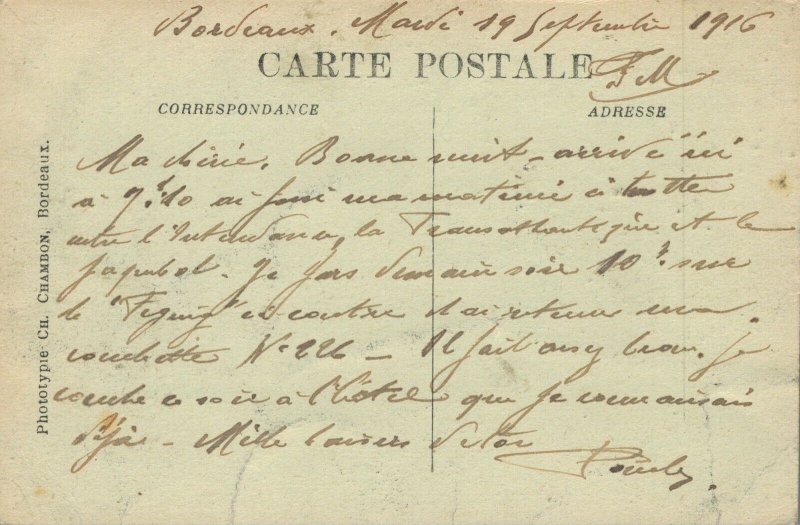 Bordeaux, Mardi 19 Septembre 1916
CARTE POSTALE
F.M
CORRESPONDANCE
ADRESSE
Ma chérie, Bonne nuit - arrivé ici
à 7h10 ai passé ma matinée à trotter
entre l'Intendance, la Transatlantique et le
paquebot. Je pars demain soir 10h sur
le "Figuig" ci contre et ai retenu ma
couchette No 226 - Il fait assez beau. Je
couche ce soir à l'hôtel que je connaissais
déjà - Mille baisers de ton
Phototypie CH. CHAMBON, Bordeaux.